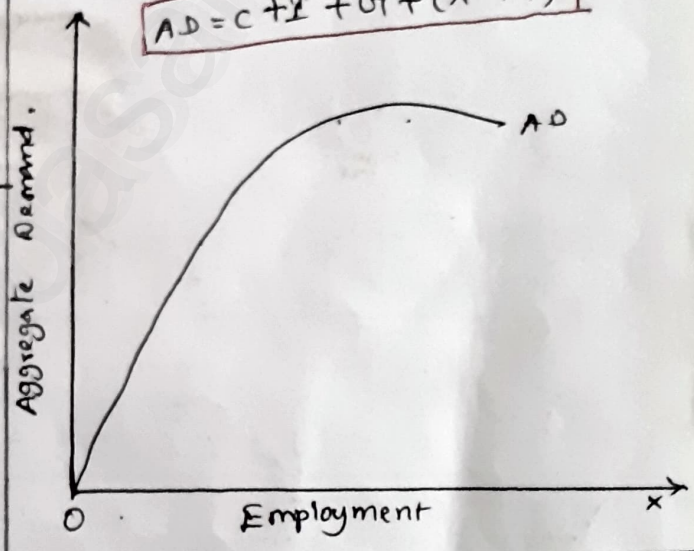 AD = C + I + G + (X
Aggregate Demand.
AD
O
Employment
X